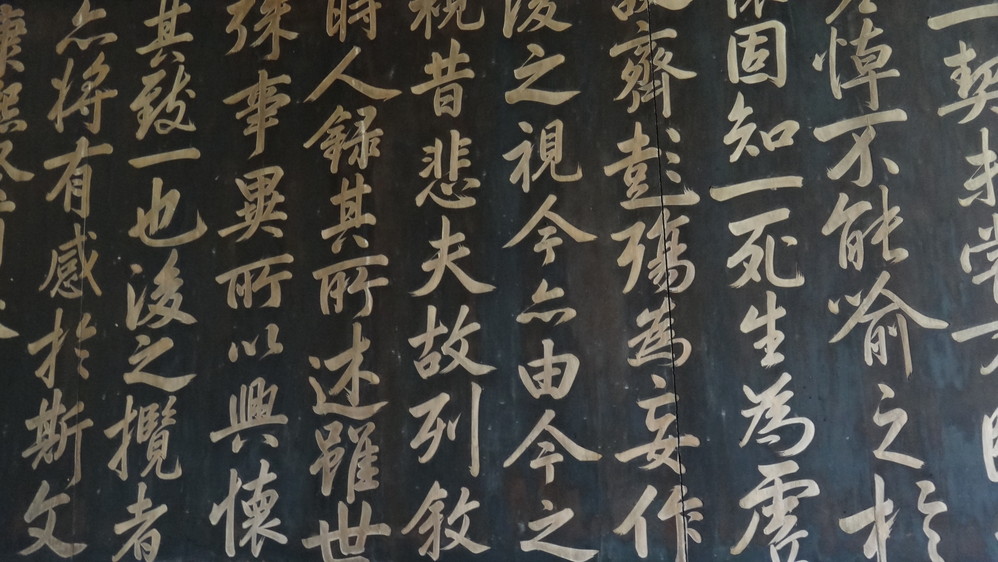 一契未嘗不
悼不能喻之於
懷固知一死生為虛
誕齊彭殤為妄作
後之視今亦由今之
視昔悲夫故列敘
時人録其所述雖世
殊事異所以興懷
其致一也後之攬者
亦將有感於斯文
康熙